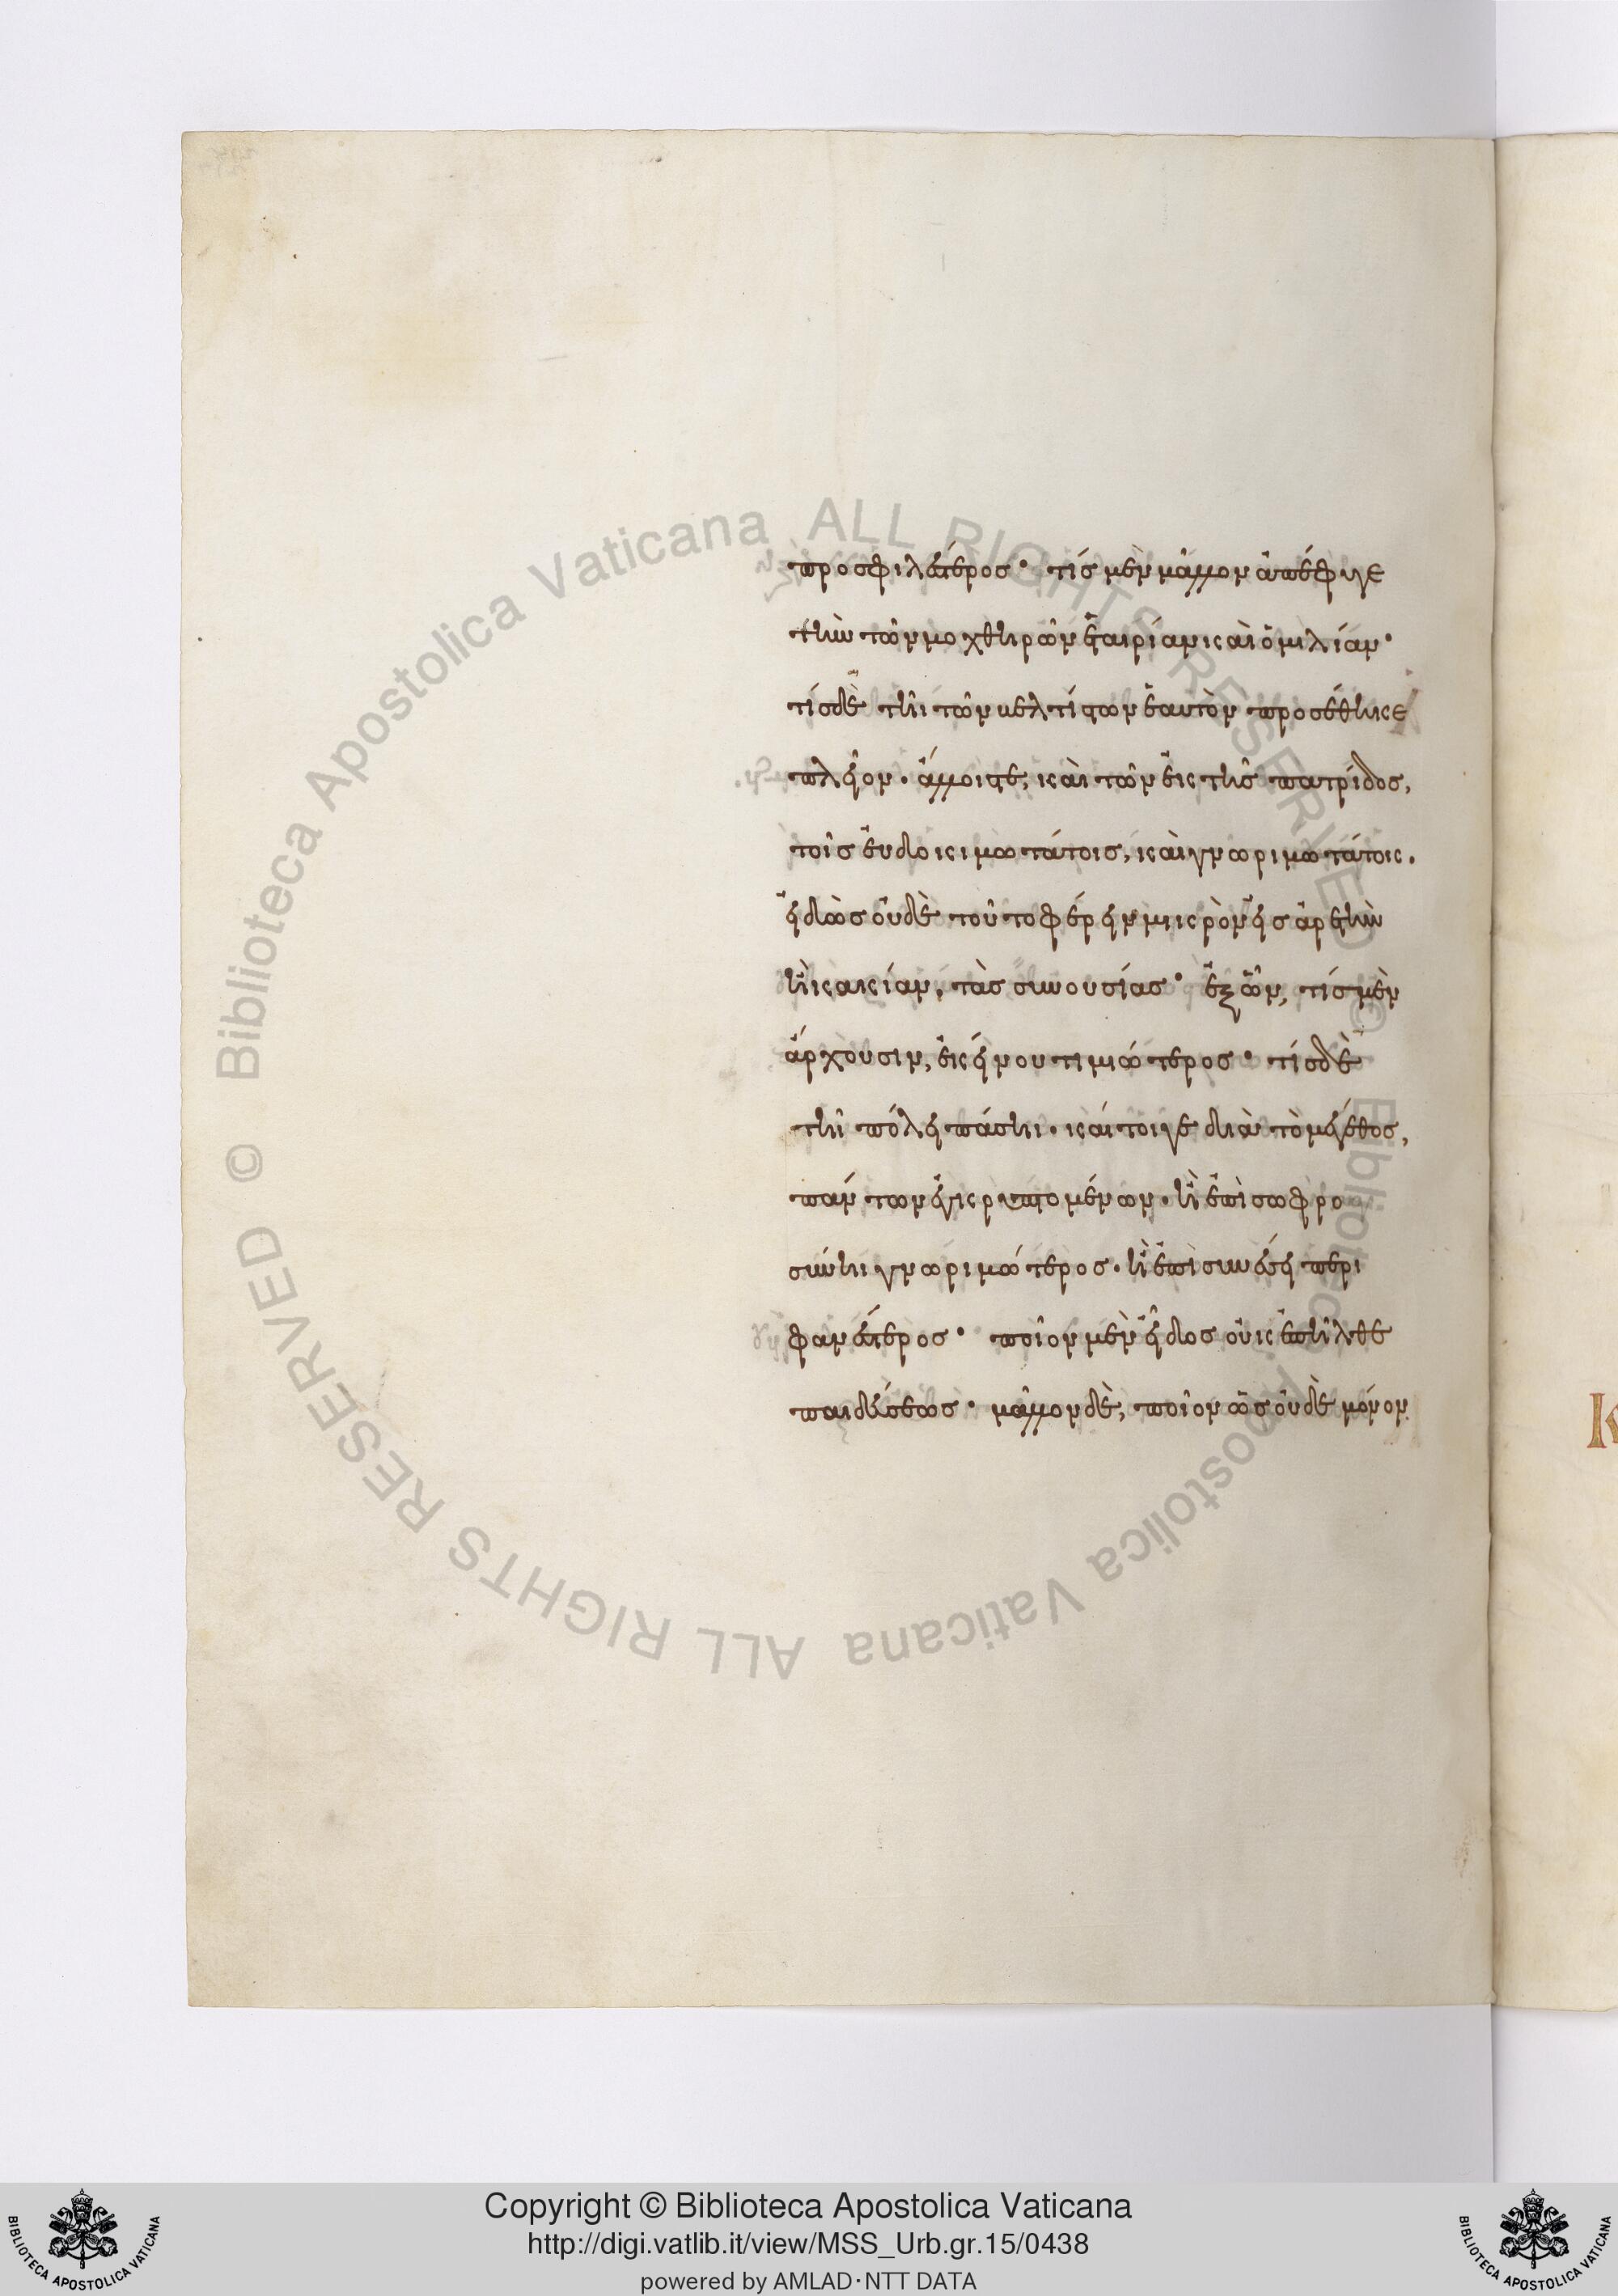 προσφιλέστερος· τίς μὲν μᾶλλον ἀπέφυγε
τὴν τῶν μοχθηρῶν ἑταιρίαν καὶ ὁμιλίαν·
τίς δὲ τῆι τῶν βελτιόνων ἑαυτὸν προσέθηκε
πλεῖον. ἄλλοις τε, καὶ τῶν ἐκ τῆς πατρίδος,
τοῖς εὐδοκιμωτάτοις, καὶ γνωριμωτάτοις.
εἰδὼς οὐδὲ τοῦτο φέρειν μικρὸν εἰς ἀρετὴν
ἢ κακίαν, τὰς συνουσίας· ἐξ ὧν, τίς μὲν
ἄρχουσιν, ἐκείνου τιμιώτερος· τίς δὲ
τῆι πόλει πάσηι. καίτοιγε διὰ τὸ μέγεθος,
πάντων ἐγκρυπτομένων. ἢ ἐπὶ σωφρο
σύνηι γνωριμώτερος. ἢ ἐπὶ συνέσει περι
φανέστερος· ποῖον μὲν εἶδος οὐκ ἐπῆλθε
παιδεύσεως· μᾶλλον δὲ, ποῖον ὡς οὐδὲ μόνον
Copyright © Biblioteca Apostolica Vaticana
http://digi.vatlib.it/view/MSS_Urb.gr.15/0438
powered by AMLAD·NTT DATA
BIBLIOTECA APOSTOLICA VATICANA
BIBLIOTECA APOSTOLICA VATICANA
© Biblioteca Apostolica Vaticana ALL RIGHTS RESERVED © Biblioteca Apostolica Vaticana ALL RIGHTS RESERVED